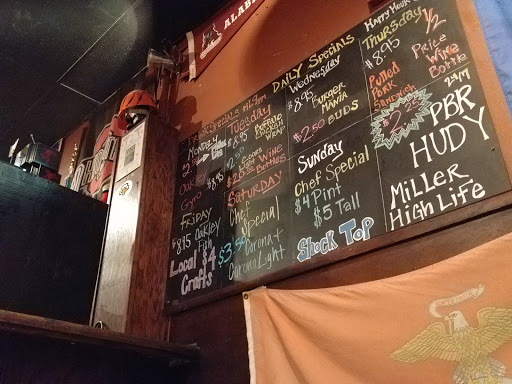 ALAB
DAILY Specials
Monday
Oakley
Gyro
$8.95
Tuesday
$8.95
Buffalo
Chicken
Wrap
Wine
Bottles
Wednesday
$8.95
BURGER
MANIA
$2.50 BUDS
Happy Hour
Thursday
$8.95
Pulled
Pork
Sandwich
1/2
Price
Wine
Bottle
FRIDAY
$8.95 Oakley
Fish
Local $4
Crafts
SATURDAY
Chef
Special
Corona +
Corona Light
Sunday
Chef Special
$4 Pint
$5 Tall
Shock Top
$2.25
PBR
HUDY
MILLER
High Life